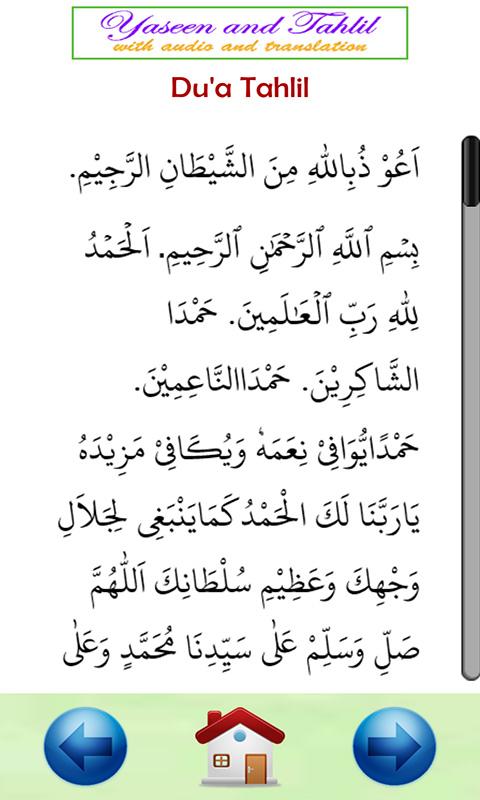 Yaseen and Tahlil
with audio and translation
Du'a Tahlil
اَعُوْ ذُبِاللهِ مِنَ الشَّيْطَانِ الرَّجِيْمِ.
بِسْمِ ٱللَّهِ ٱلرَّحْمَٰنِ ٱلرَّحِيمِ. اَلْحَمْدُ
لِلّٰهِ رَبِّ ٱلْعَٰلَمِينَ. حَمْدَا
الشَّاكِرِيْنَ. حَمْدَاالنَّاعِمِيْنَ.
حَمْدًايُّوَافِىْ نِعَمَهٗ وَيُكَافِىْ مَزِيْدَهُ
يَارَبَّنَا لَكَ الْحَمْدُكَمَايَنْبَغِى لِجَلاَلِ
وَجْهِكَ وَعَظِيْمِ سُلْطَانِكَ اَللّٰهُمَّ
صَلِّ وَسَلِّمْ عَلٰى سَيِّدِنَا مُحَمَّدٍ وَعَلٰى